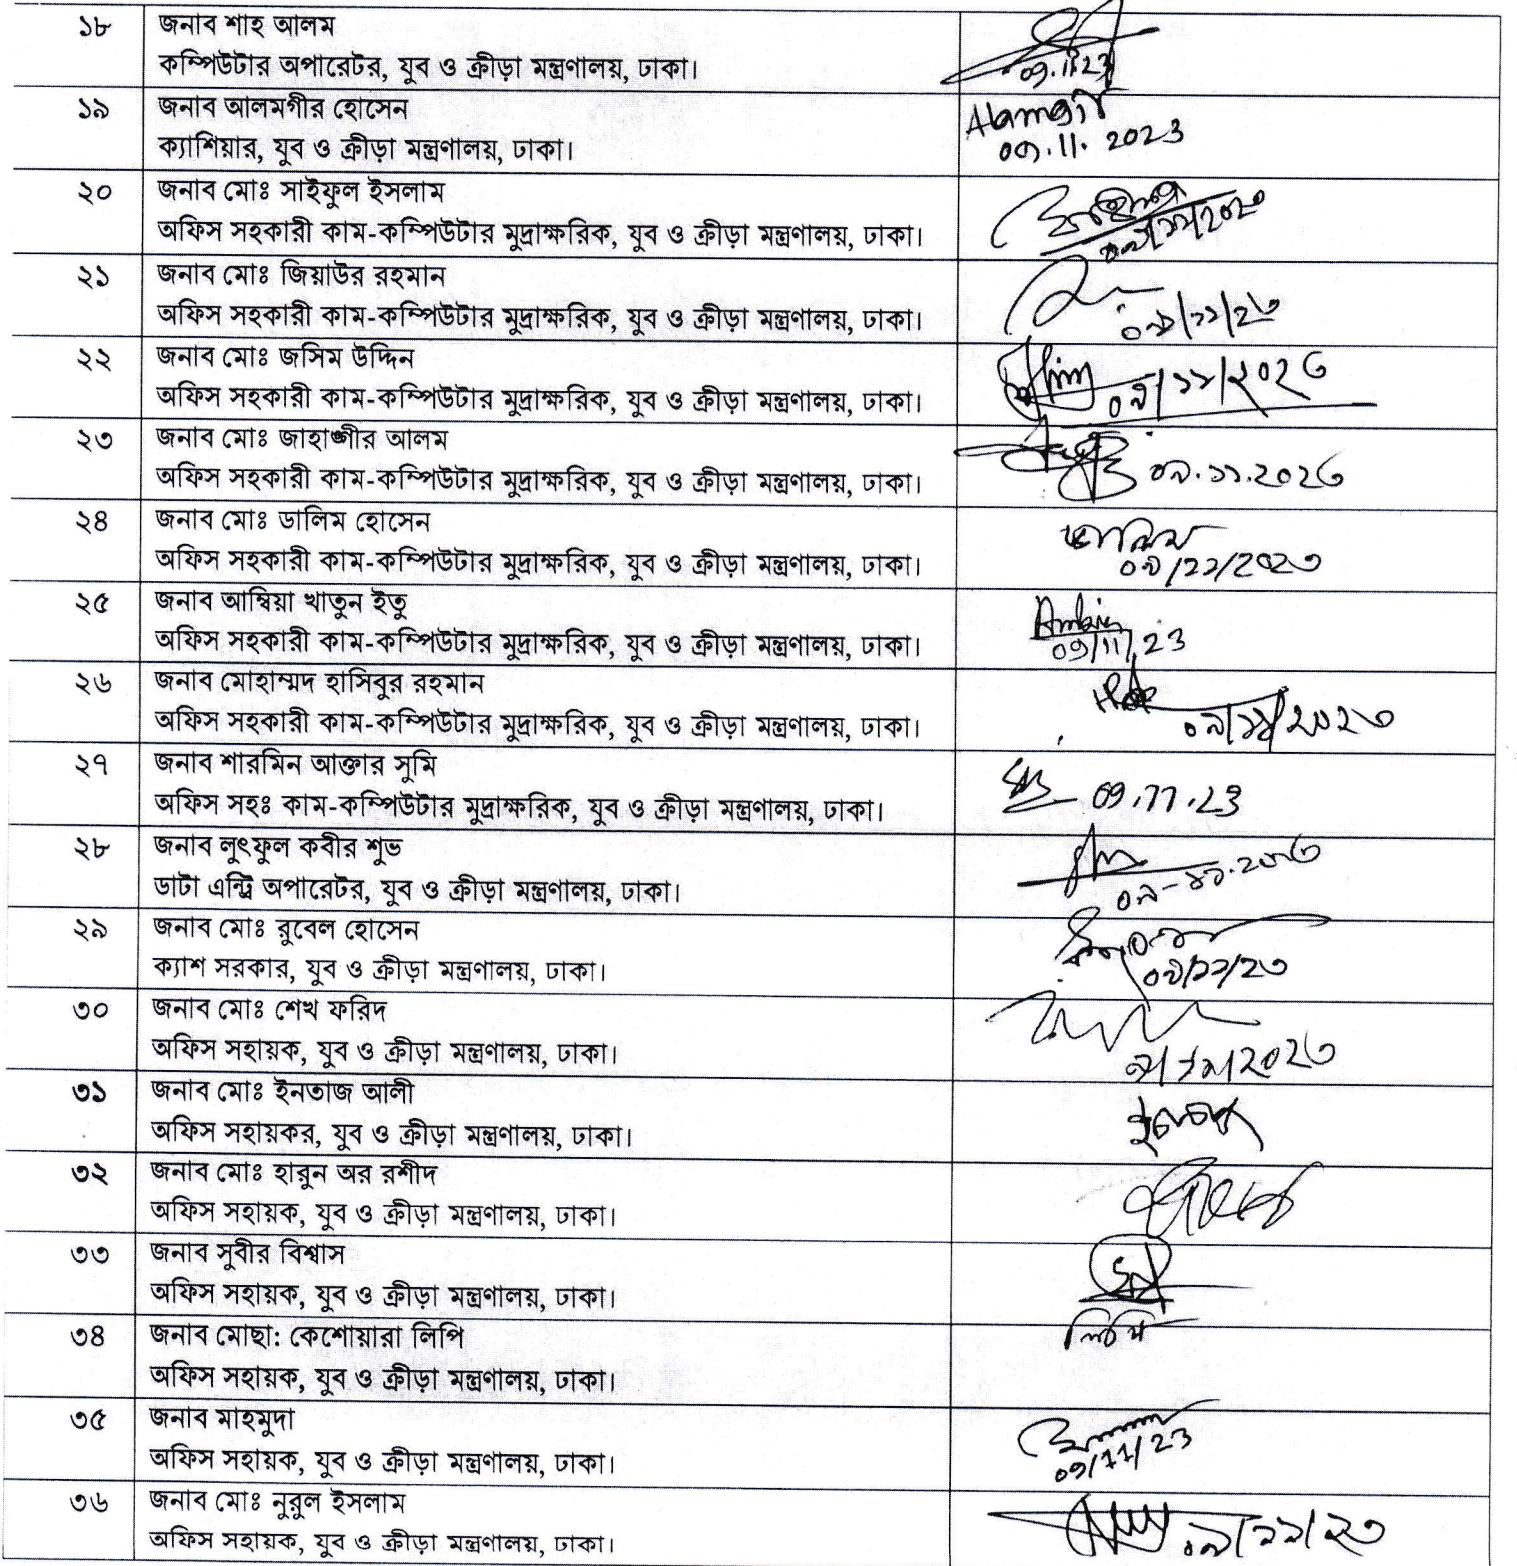 ১৮
জনাব শাহ আলম
কম্পিউটার অপারেটর, যুব ও ক্রীড়া মন্ত্রণালয়, ঢাকা।
09.11.23
১৯
জনাব আলমগীর হোসেন
ক্যাশিয়ার, যুব ও ক্রীড়া মন্ত্রণালয়, ঢাকা।
Alamgir
09.11.2023
২০
জনাব মোঃ সাইফুল ইসলাম
অফিস সহকারী কাম-কম্পিউটার মুদ্রাক্ষরিক, যুব ও ক্রীড়া মন্ত্রণালয়, ঢাকা।
০৯/১১/২০২৩
২১
জনাব মোঃ জিয়াউর রহমান
অফিস সহকারী কাম-কম্পিউটার মুদ্রাক্ষরিক, যুব ও ক্রীড়া মন্ত্রণালয়, ঢাকা।
০৯/১১/২৩
২২
জনাব মোঃ জসিম উদ্দিন
অফিস সহকারী কাম-কম্পিউটার মুদ্রাক্ষরিক, যুব ও ক্রীড়া মন্ত্রণালয়, ঢাকা।
০৯/১১/২০২৩
২৩
জনাব মোঃ জাহাঙ্গীর আলম
অফিস সহকারী কাম-কম্পিউটার মুদ্রাক্ষরিক, যুব ও ক্রীড়া মন্ত্রণালয়, ঢাকা।
০৯.১১.২০২৩
২৪
জনাব মোঃ ডালিম হোসেন
অফিস সহকারী কাম-কম্পিউটার মুদ্রাক্ষরিক, যুব ও ক্রীড়া মন্ত্রণালয়, ঢাকা।
ডালিম
০৯/১১/২০২৩
২৫
জনাব আম্বিয়া খাতুন ইতু
অফিস সহকারী কাম-কম্পিউটার মুদ্রাক্ষরিক, যুব ও ক্রীড়া মন্ত্রণালয়, ঢাকা।
Ambia
09/11/23
২৬
জনাব মোহাম্মদ হাসিবুর রহমান
অফিস সহকারী কাম-কম্পিউটার মুদ্রাক্ষরিক, যুব ও ক্রীড়া মন্ত্রণালয়, ঢাকা।
০৯/১১/২০২৩
২৭
জনাব শারমিন আক্তার সুমি
অফিস সহঃ কাম-কম্পিউটার মুদ্রাক্ষরিক, যুব ও ক্রীড়া মন্ত্রণালয়, ঢাকা।
09.11.23
২৮
জনাব লুৎফুল কবীর শুভ
ডাটা এন্ট্রি অপারেটর, যুব ও ক্রীড়া মন্ত্রণালয়, ঢাকা।
০৯-১১.২০২৩
২৯
জনাব মোঃ রুবেল হোসেন
ক্যাশ সরকার, যুব ও ক্রীড়া মন্ত্রণালয়, ঢাকা।
০৯/১১/২৩
৩০
জনাব মোঃ শেখ ফরিদ
অফিস সহায়ক, যুব ও ক্রীড়া মন্ত্রণালয়, ঢাকা।
৯/১১/২০২৩
৩১
জনাব মোঃ ইনতাজ আলী
অফিস সহায়কর, যুব ও ক্রীড়া মন্ত্রণালয়, ঢাকা।
৩২
জনাব মোঃ হারুন অর রশীদ
অফিস সহায়ক, যুব ও ক্রীড়া মন্ত্রণালয়, ঢাকা।
৩৩
জনাব সুবীর বিশ্বাস
অফিস সহায়ক, যুব ও ক্রীড়া মন্ত্রণালয়, ঢাকা।
৩৪
জনাব মোছা: কেশোয়ারা লিপি
অফিস সহায়ক, যুব ও ক্রীড়া মন্ত্রণালয়, ঢাকা।
লিপি
৩৫
জনাব মাহমুদা
অফিস সহায়ক, যুব ও ক্রীড়া মন্ত্রণালয়, ঢাকা।
09/11/23
৩৬
জনাব মোঃ নুরুল ইসলাম
অফিস সহায়ক, যুব ও ক্রীড়া মন্ত্রণালয়, ঢাকা।
০৯/১১/২৩